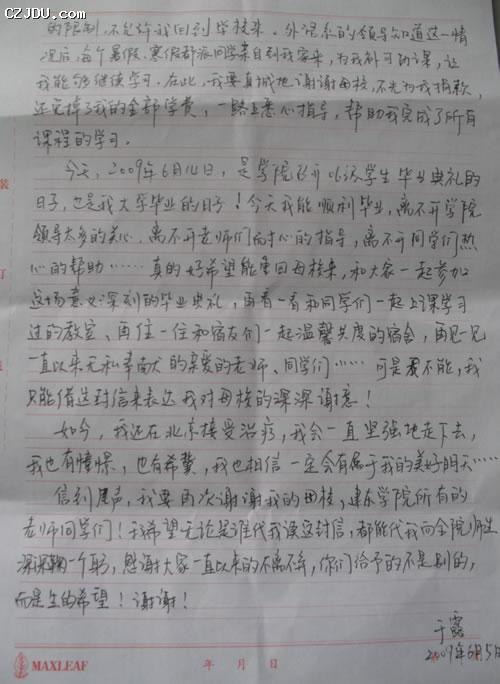 CZJDU.COM
的限制，不允许我回到学校来。外语系的领导知道这一情
况后，每个暑假、寒假都派同学亲自到我家来，为我补习功课，让
我能够继续学习。在此，我要真诚地谢谢母校，不光为我捐款，
还免掉了我的全部学费，一路上悉心指导，帮助我完成了所有
课程的学习。
今天，2009年6月14日，是学院召开09级学生毕业典礼的
日子，也是我大学毕业的日子！今天我能顺利毕业，离不开学院
领导太多的关心，离不开老师们耐心的指导，离不开同学们热
心的帮助……真的好希望能重回母校来，和大家一起参加
这场意义深刻的毕业典礼，再看一看和同学们一起上课学习
过的教室、再住一住和宿友们一起温馨共度的宿舍，再见一见
一直以来无私奉献的亲爱的老师、同学们……可是不能，我
只能借这封信来表达我对母校的深深谢意！
如今，我还在北京接受治疗，我会一直坚强地走下去，
我也有憧憬，也有希冀，我也相信一定会有属于我的美好明天……
信到尾声，我要再次谢谢我的母校，建东学院所有的
老师同学们！我希望无论是谁代我读这封信，都能代我向全院师生
深深鞠一个躬，感谢大家一直以来的不离不弃，你们给予的不是别的，
而是生的希望！谢谢！
于露
2009年6月5日
MAXLEAF
年 月 日
装
订